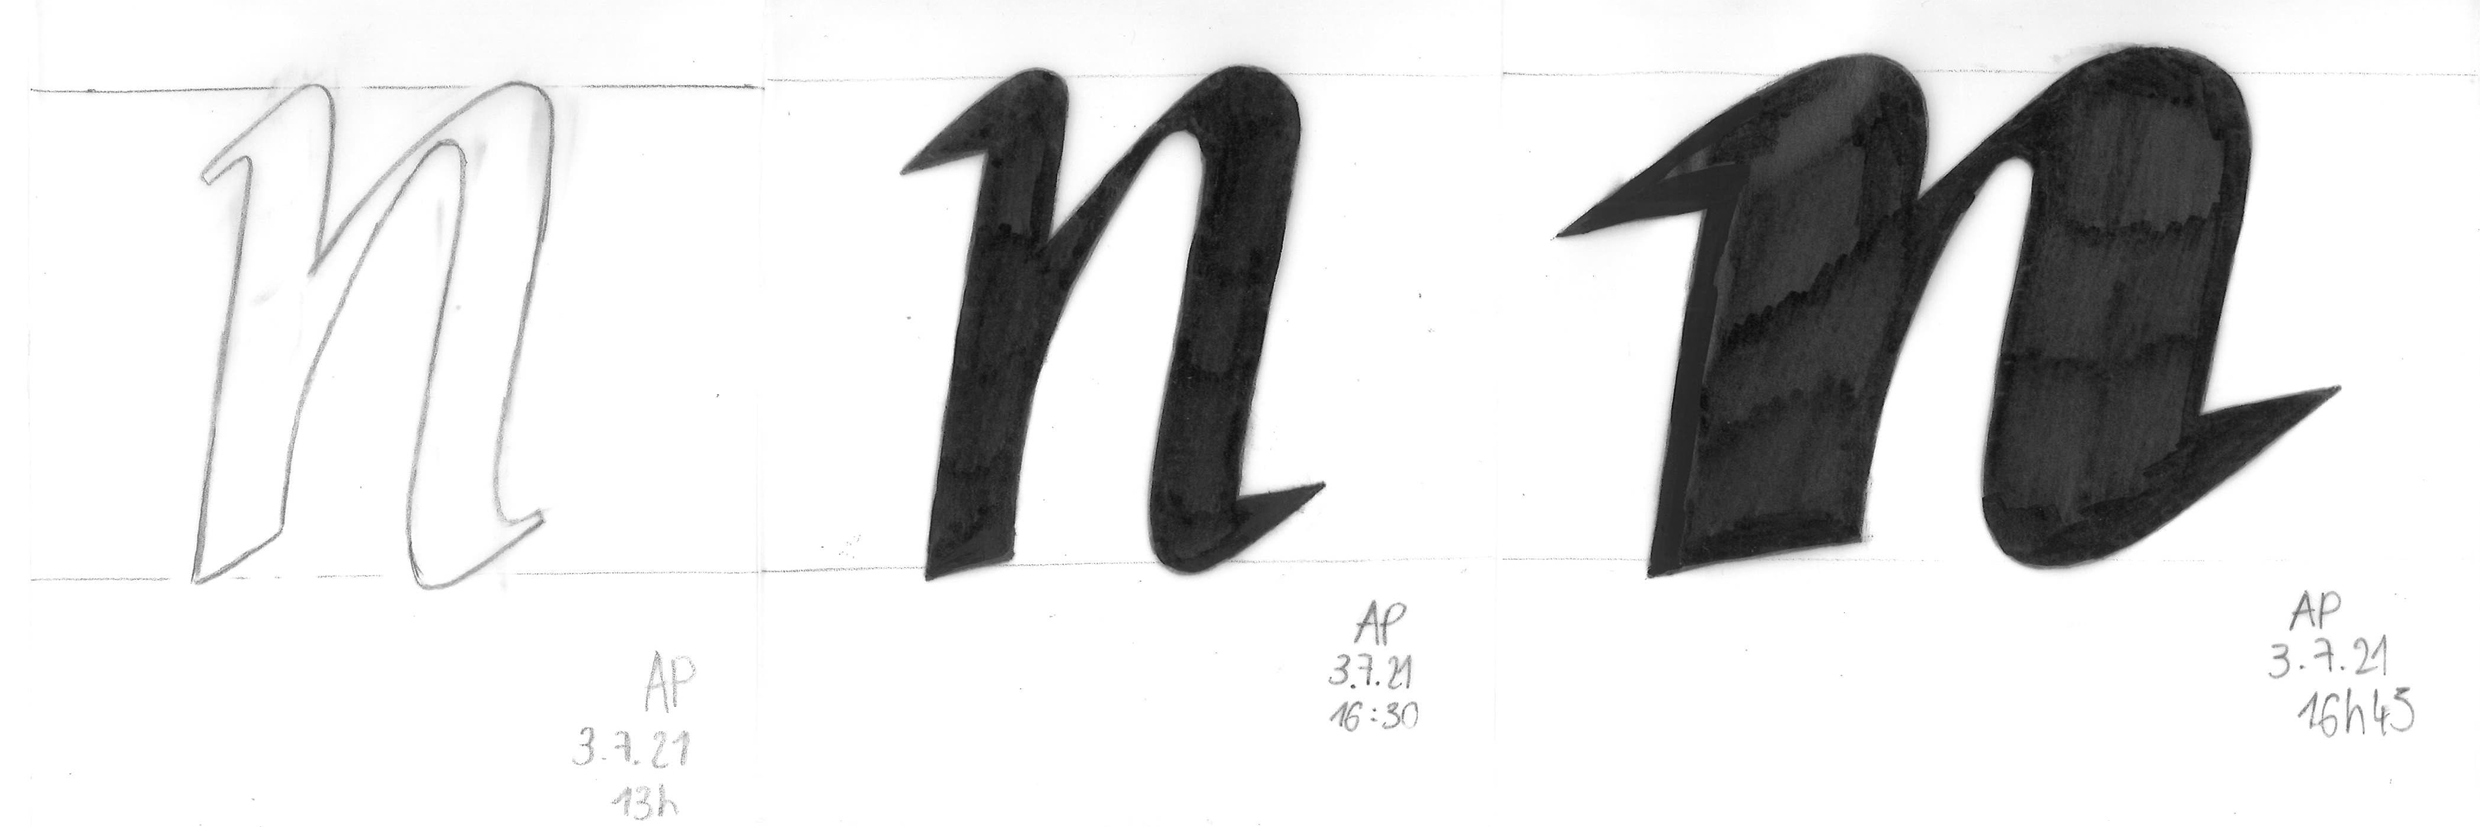 n n n
AP
3.7.21
13h
AP
3.7.21
16:30
AP
3.7.21
16h45